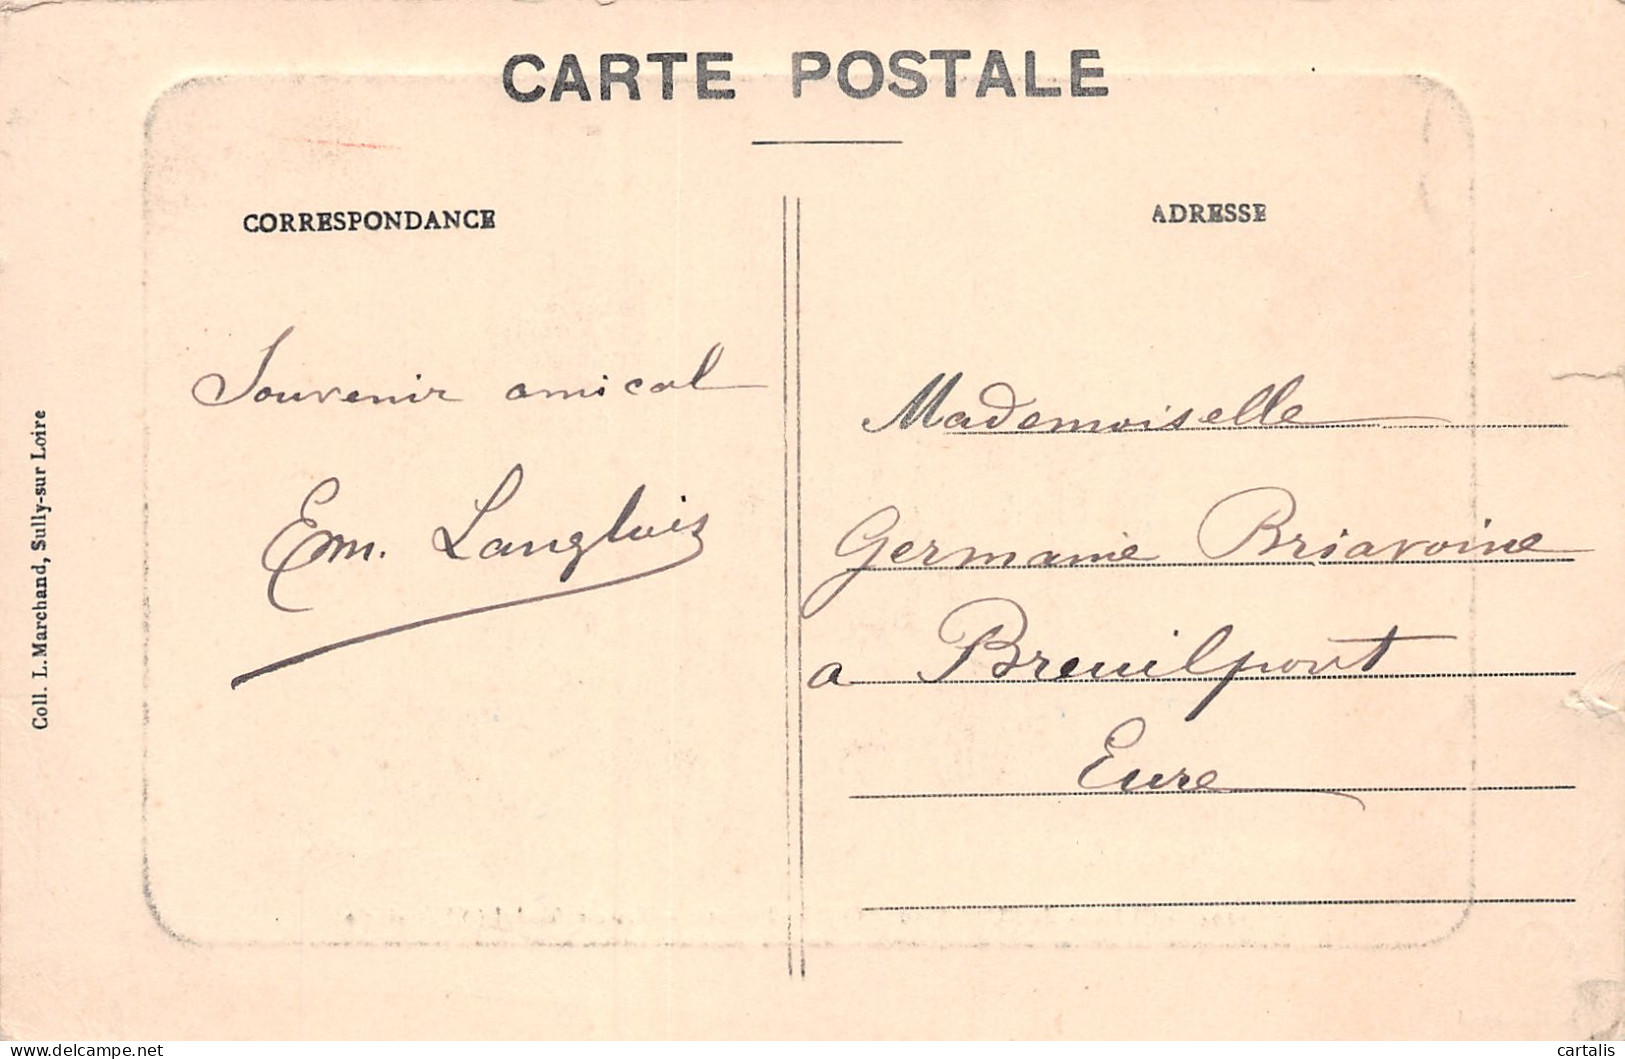 CARTE POSTALE
CORRESPONDANCE
ADRESSE
Souvenir amical
Em. Langlois
Mademoiselle
Germaine Briavoine
a Breuilpont
Eure
Coll. L. Marchand, Sully-sur Loire
www.delcampe.net
cartalis